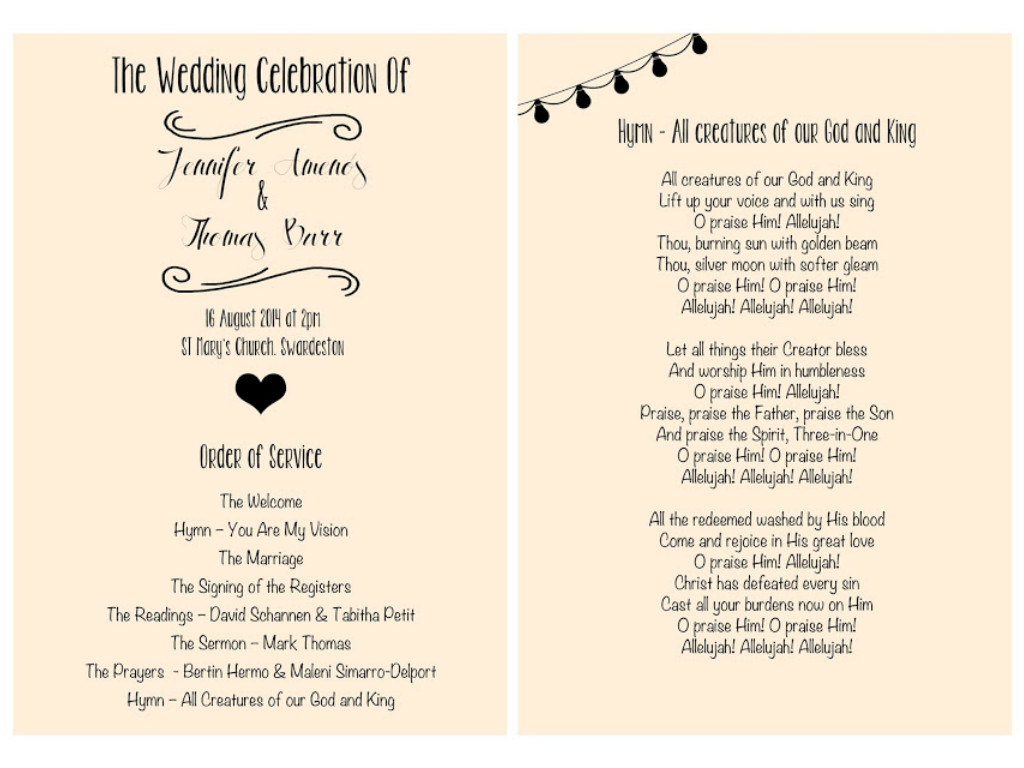 The Wedding Celebration Of
Jennifer Amenós
&
Thomas Barr
16 August 2014 at 2pm
ST Mary's Church, Swardeston
Order of Service
The Welcome
Hymn – You Are My Vision
The Marriage
The Signing of the Registers
The Readings – David Schannen & Tabitha Petit
The Sermon – Mark Thomas
The Prayers - Bertin Hermo & Maleni Simarro-Delport
Hymn – All Creatures of our God and King
Hymn - All creatures of our God and King
All creatures of our God and King
Lift up your voice and with us sing
O praise Him! Allelujah!
Thou, burning sun with golden beam
Thou, silver moon with softer gleam
O praise Him! O praise Him!
Allelujah! Allelujah! Allelujah!
Let all things their Creator bless
And worship Him in humbleness
O praise Him! Allelujah!
Praise, praise the Father, praise the Son
And praise the Spirit, Three-in-One
O praise Him! O praise Him!
Allelujah! Allelujah! Allelujah!
All the redeemed washed by His blood
Come and rejoice in His great love
O praise Him! Allelujah!
Christ has defeated every sin
Cast all your burdens now on Him
O praise Him! O praise Him!
Allelujah! Allelujah! Allelujah!